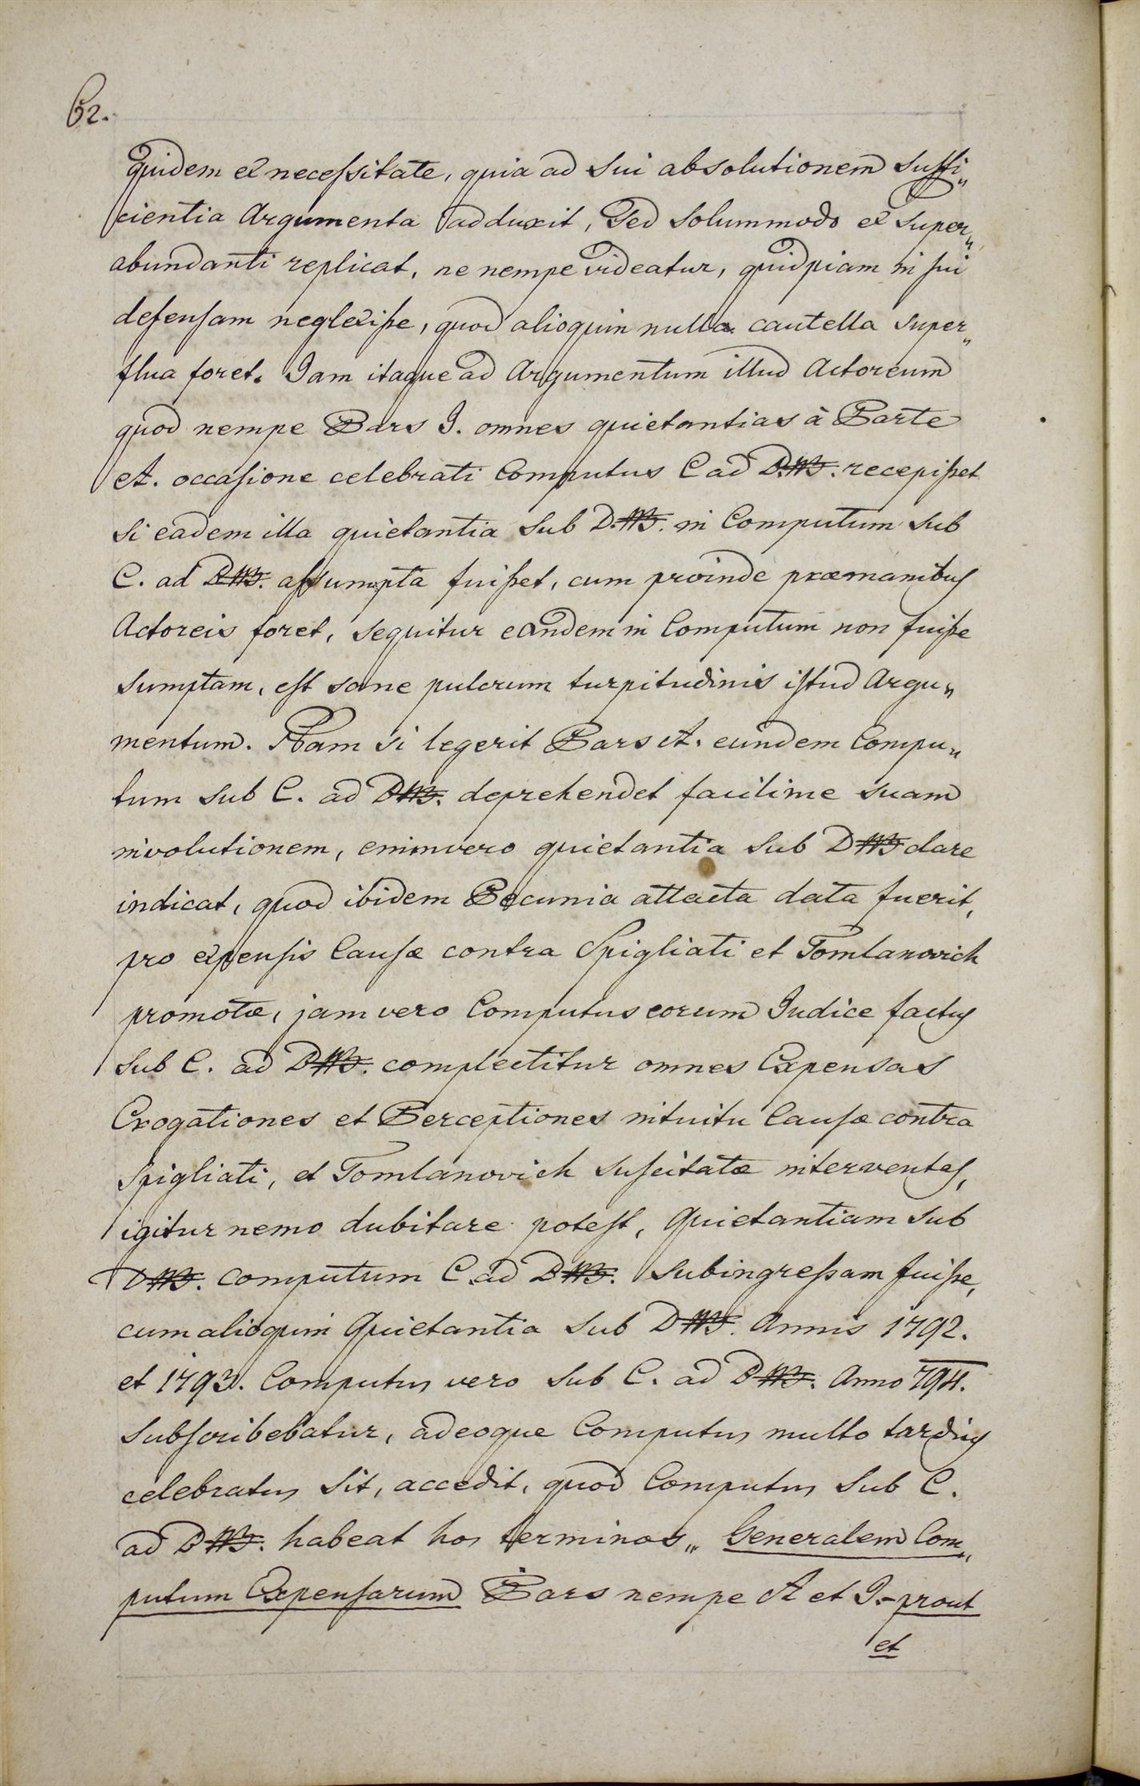 62.
quidem ex necessitate, quia ad sui absolutionem suffi„
cientia Argumenta adduxit, Sed solummodo ex super„
abundanti replicat, ne nempe videatur, quidpiam in sui
defensam neglexisse, quod alioquin nulla cautella super„
flua foret. Jam itaque ad Argumentum illud Actoreum
quod nempe Pars J. omnes quietantias à Parte
A. occasione celebrati Computus C ad D. recepisset
si eadem illa quietantia sub D. in Computum sub
C. ad assumpta fuisset, cum proinde præmanibus
Actoreis foret, sequitur eandem in Computum non fuisse
sumptam, est sane pulcrum turpitudinis istud Argu„
mentum. Nam si legerit Pars A. eundem Compu„
tum sub C. ad deprehendet facilime suam
involutionem, enimvero quietantia sub D clare
indicat, quod ibidem Pecunia attacta data fuerit,
pro expensis Causæ contra Spigliati et Tomlanovich
promotæ, jam vero Computus eorum Judice factus
sub C. ad complectitur omnes Expensas
Erogationes et Perceptiones intuitu Causæ contra
Spigliati, et Tomlanovich suscitatæ interventas,
igitur nemo dubitare potest, Quietantiam sub
computum C ad subingressam fuisse,
cum alioquin Quietantia sub D Annis 1792.
et 1793. Computus vero sub C. ad Anno 794.
subscribebatur, adeoque Computus multo tardius
celebratus sit, accedit, quod Computus sub C.
ad habeat hos terminos„ Generalem Com„
putum Expensarum Pars nempe A et J.- prout
et